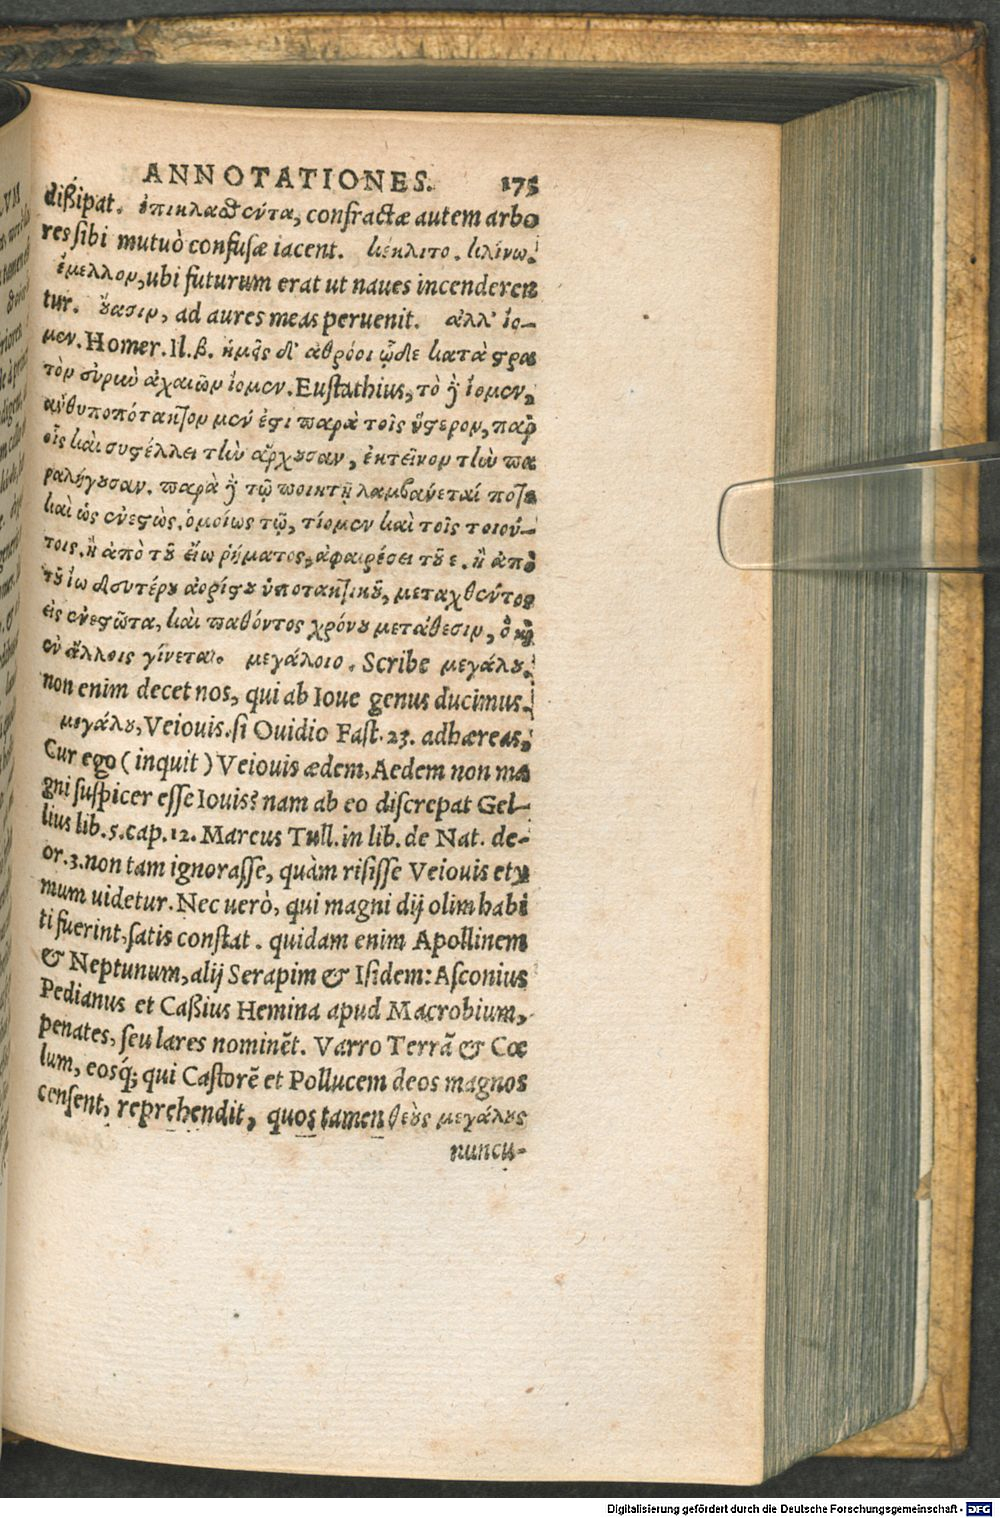 ANNOTATIONES. 175
dißipat. ἐπικλαθεντα, confractæ autem arbo
res sibi mutuò confusæ iacent. κέκλιτο. κλίνω.
ἔμελλον, ubi futurum erat ut naues incenderen
tur. ὄασιν, ad aures meas peruenit. ἀλλ' ἴο-
μεν. Homer. Il. β. ἡμεῖς δ' ἀθρόοι ὧδε κατὰ στρα
τὸν εὐρὺν ἀχαιῶν ἴομεν. Eustathius, τὸ ἢ ἴομεν,
ἀνθυποπότακτον μέν ἐστι παρὰ τοῖς ὕστερον, παρ
οἷς καὶ συστέλλει τὴν ἄρχουσαν, ἐκτεῖνον τὴν πα
ραλήγουσαν. παρὰ ἢ τῷ ποιητῇ λαμβάνεταί ποτε
καὶ ὡς ἐνεστὼς. ὁμοίως τῷ, τίομεν καὶ τοῖς τοιού-
τοις. ἢ ἀπὸ τοῦ εἴω ῥήματος, ἀφαιρέσει τοῦ ε. ἢ ἀπὸ
τοῦ ἴω δευτέρου ἀορίστου ὑποτακτικοῦ, μεταχθέντος
εἰς ἐνεστῶτα, καὶ παθόντος χρόνου μετάθεσιν, ὃ καὶ
ἐν ἄλλοις γίνεται. μεγάλοιο. Scribe μεγάλου,
non enim decet nos, qui ab Ioue genus ducimus.
μεγάλου, Veiouis. si Ouidio Fast. 23. adhæreas,
Cur ego (inquit) Veiouis ædem, Aedem non ma
gni suspicer esse Iouis? nam ab eo discrepat Gel-
lius lib. 5. cap. 12. Marcus Tull. in lib. de Nat. de-
or. 3. non tam ignorasse, quàm risisse Veiouis ety
mum uidetur. Nec uerò, qui magni dij olim habi
ti fuerint, satis constat. quidam enim Apollinem
& Neptunum, alij Serapim & Isidem: Asconius
Pedianus et Caßius Hemina apud Macrobium,
penates, seu lares nominẽt. Varro Terrã & Cœ
lum, eosq́; qui Castorẽ et Pollucem deos magnos
censent, reprehendit, quos tamen θεοὺς μεγάλους
nuncu-
Digitalisierung gefördert durch die Deutsche Forschungsgemeinschaft - DFG